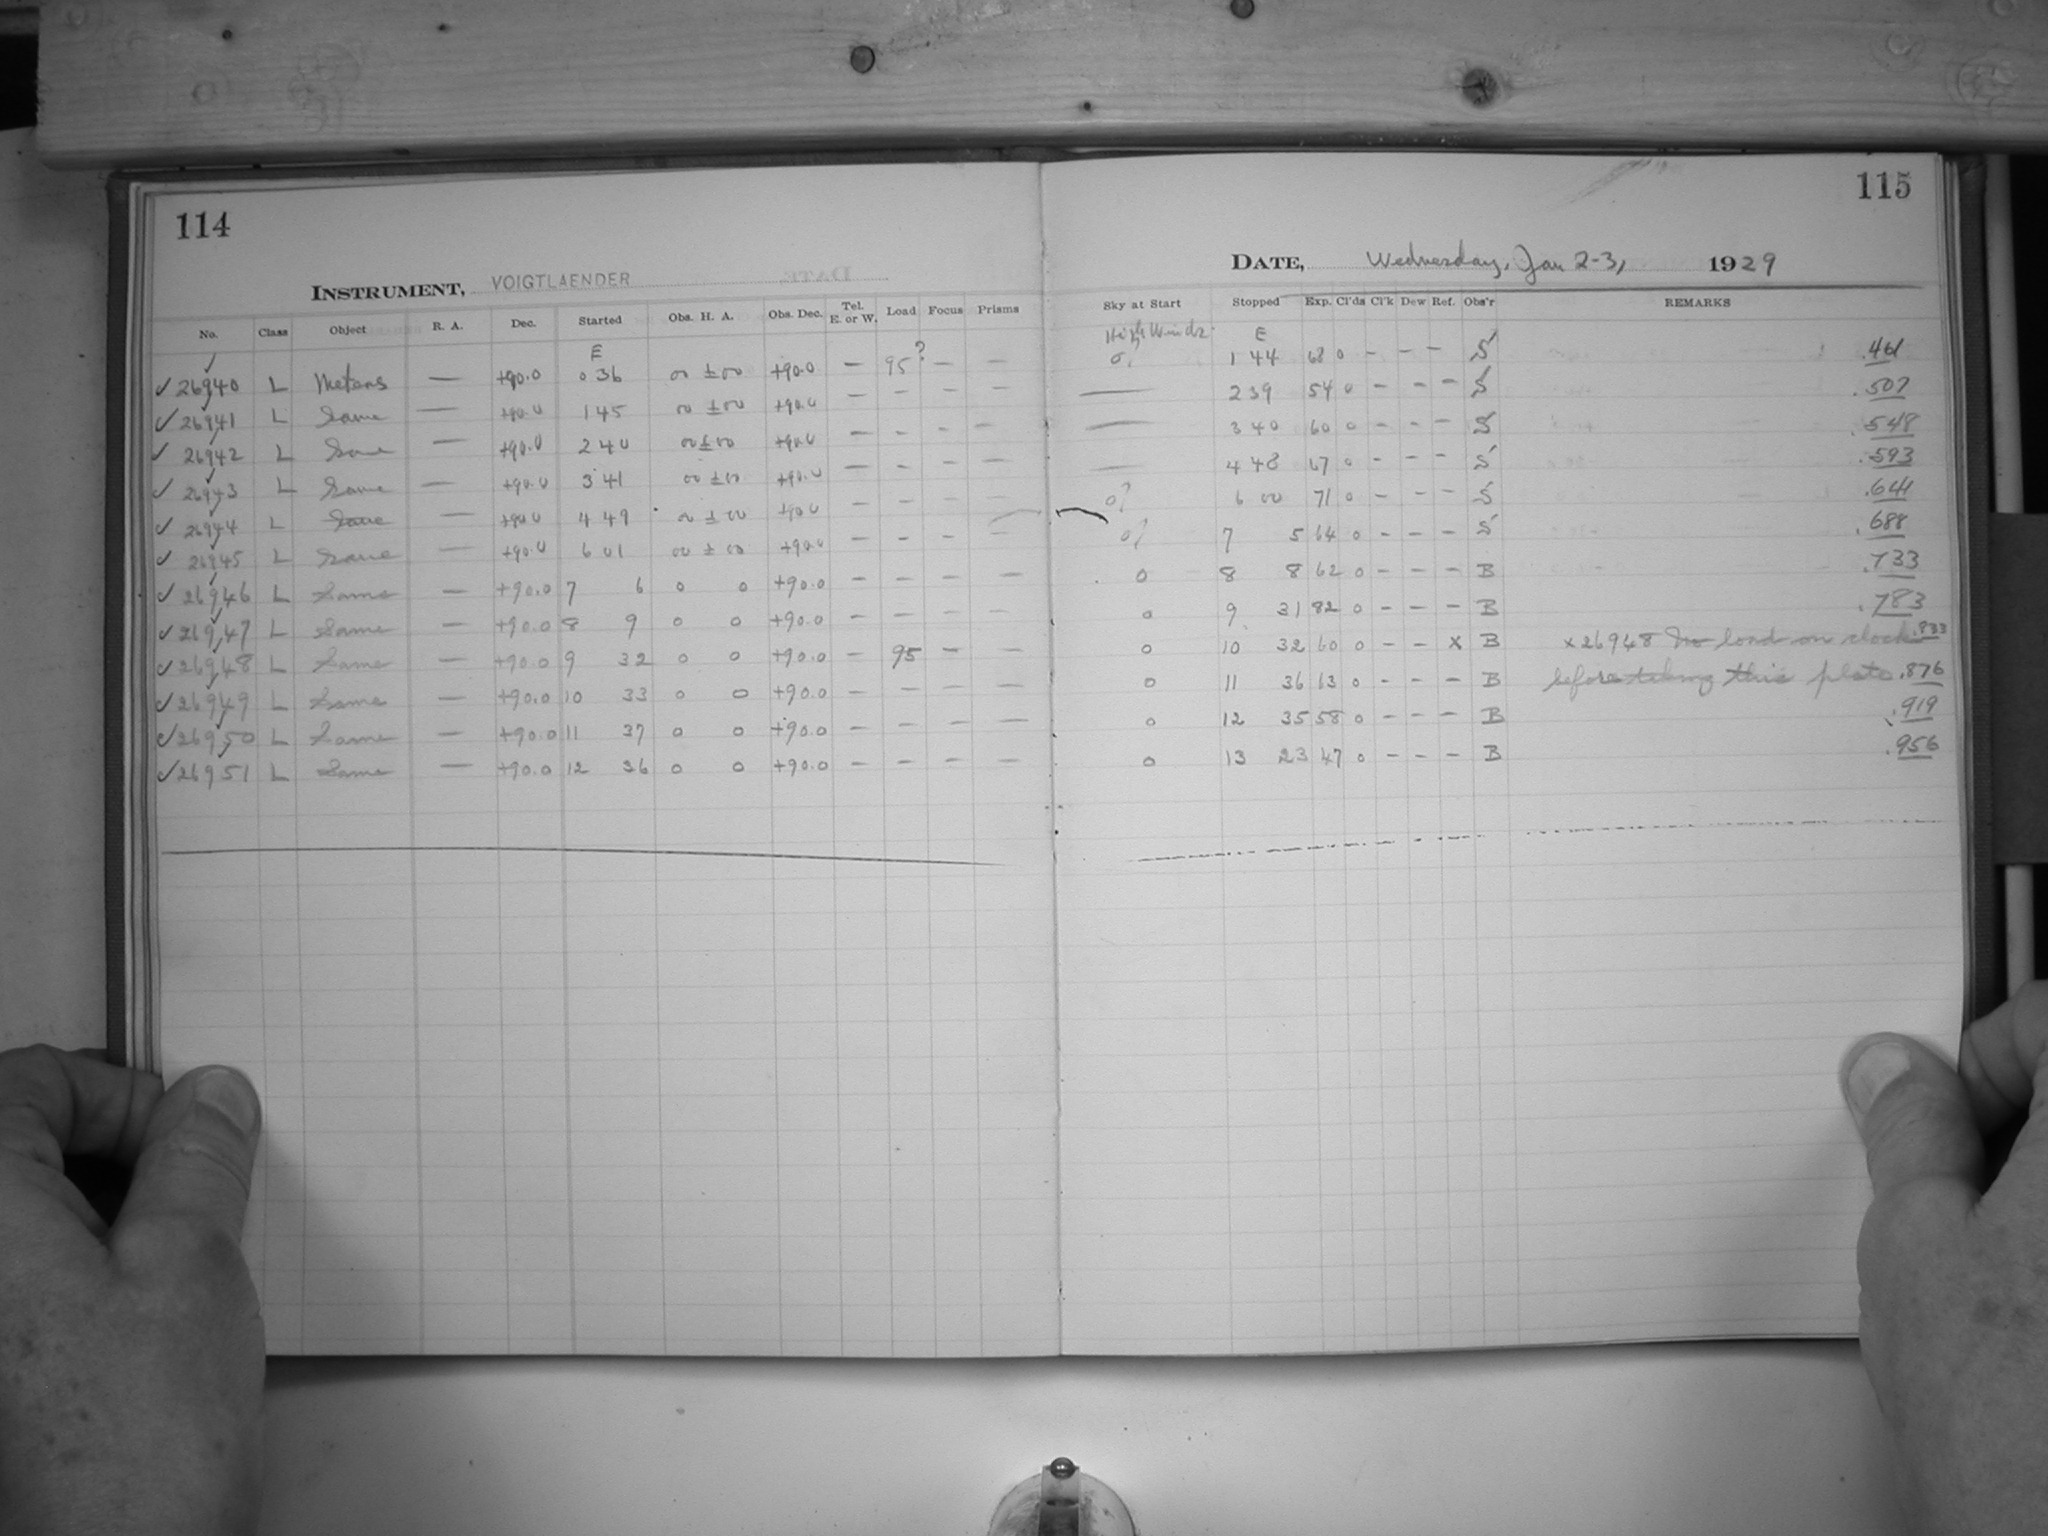 114
INSTRUMENT, VOIGTLAENDER
No. Class Object R. A. Dec. Started Obs. H. A. Obs. Dec. Tel. E. or W. Load Focus Prisms
E
✓ 26940 L Meteors — +90.0 0 36 00 ± 00 +90.0 — 95? — —
✓ 26941 L Same — +90.0 1 45 00 ± 00 +90.0 — — — —
✓ 26942 L Same — +90.0 2 40 00 ± 00 +90.0 — — — —
✓ 26943 L Same — +90.0 3 41 00 ± 00 +90.0 — — — —
✓ 26944 L Same — +90.0 4 49 00 ± 00 +90.0 — — — —
✓ 26945 L Same — +90.0 6 01 00 ± 00 +90.0 — — — —
✓ 26946 L Same — +90.0 7 6 0 0 +90.0 — — — —
✓ 26947 L Same — +90.0 8 9 0 0 +90.0 — — — —
✓ 26948 L Same — +90.0 9 32 0 0 +90.0 — 95 — —
✓ 26949 L Same — +90.0 10 33 0 0 +90.0 — — — —
✓ 26950 L Same — +90.0 11 37 0 0 +90.0 — — — —
✓ 26951 L Same — +90.0 12 36 0 0 +90.0 — — — —
115
DATE, Wednesday, Jan 2-3, 1929
Sky at Start Stopped Exp. Cl'ds Cl'k Dew Ref. Obs'r REMARKS
High Winds E
0, 1 44 68 0 - - - S .461
— 2 39 54 0 - - - S .507
— 3 40 60 0 - - - S .548
— 4 48 67 0 - - - S .593
0? 6 00 71 0 - - - S .641
0? 7 5 64 0 - - - S .688
0 8 8 62 0 - - - B .733
0 9 31 82 0 - - - B .783
0 10 32 60 0 - - x B x 26948 No load on clock .833
0 11 36 63 0 - - - B before taking this plate .876
0 12 35 58 0 - - - B .919
0 13 23 47 0 - - - B .956